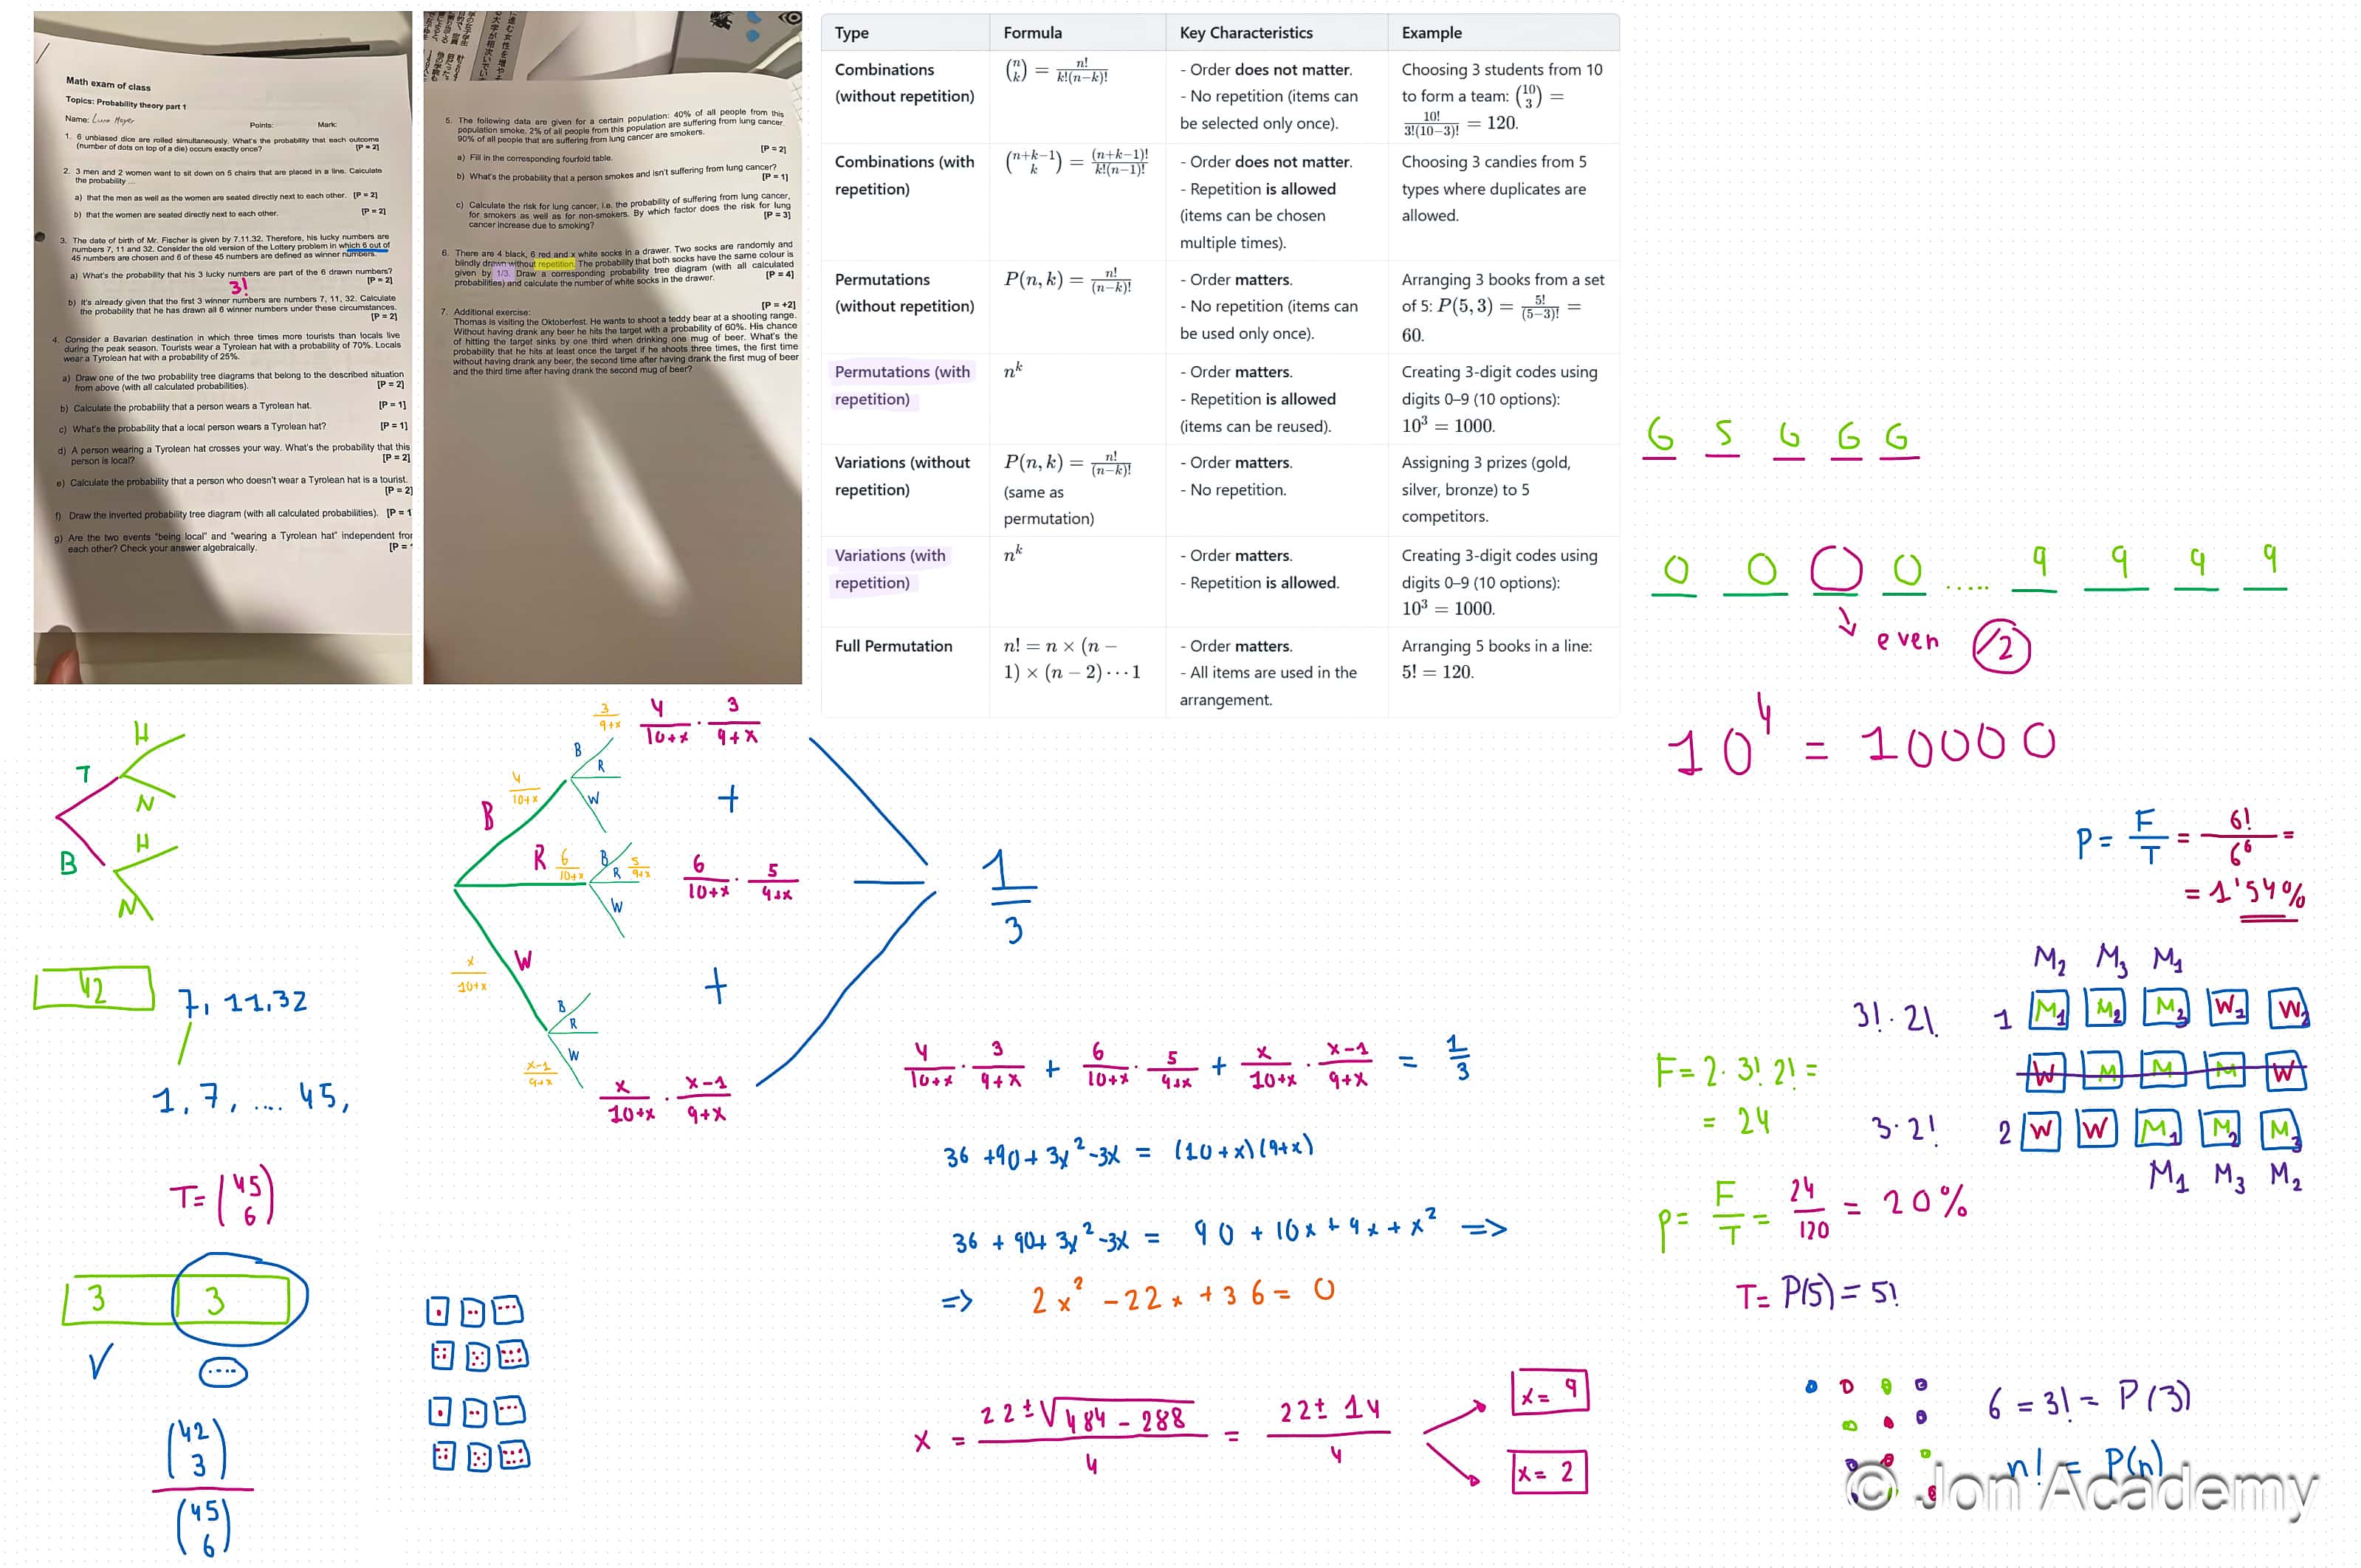 Math exam of class
Topics: Probability theory part 1
Name: Luna Mayer
Points:
Mark:
1. 6 unbiased dice are rolled simultaneously. What's the probability that each outcome
(number of dots on top of a die) occurs exactly once?
[P = 2]
2. 3 men and 2 women want to sit down on 5 chairs that are placed in a line. Calculate
the probability ...
a) that the men as well as the women are seated directly next to each other. [P = 2]
b) that the women are seated directly next to each other. [P = 2]
3. The date of birth of Mr. Fischer is given by 7.11.32. Therefore, his lucky numbers are
numbers 7, 11 and 32. Consider the old version of the Lottery problem in which 6 out of
45 numbers are chosen and 6 of these 45 numbers are defined as winner numbers.
a) What's the probability that his 3 lucky numbers are part of the 6 drawn numbers?
[P = 2]
3!
b) It's already given that the first 3 winner numbers are numbers 7, 11, 32. Calculate
the probability that he has drawn all 6 winner numbers under these circumstances.
[P = 2]
4. Consider a Bavarian destination in which three times more tourists than locals live
during the peak season. Tourists wear a Tyrolean hat with a probability of 70%. Locals
wear a Tyrolean hat with a probability of 25%.
a) Draw one of the two probability tree diagrams that belong to the described situation
from above (with all calculated probabilities). [P = 2]
b) Calculate the probability that a person wears a Tyrolean hat. [P = 1]
c) What's the probability that a local person wears a Tyrolean hat? [P = 1]
d) A person wearing a Tyrolean hat crosses your way. What's the probability that this
person is local? [P = 2]
e) Calculate the probability that a person who doesn't wear a Tyrolean hat is a tourist.
[P = 2]
f) Draw the inverted probability tree diagram (with all calculated probabilities). [P = 1
g) Are the two events "being local" and "wearing a Tyrolean hat" independent from
each other? Check your answer algebraically. [P =
5. The following data are given for a certain population: 40% of all people from this
population smoke. 2% of all people from this population are suffering from lung cancer.
90% of all people that are suffering from lung cancer are smokers.
[P = 2]
a) Fill in the corresponding fourfold table.
b) What's the probability that a person smokes and isn't suffering from lung cancer?
[P = 1]
c) Calculate the risk for lung cancer, i.e. the probability of suffering from lung cancer,
for smokers as well as for non-smokers. By which factor does the risk for lung
cancer increase due to smoking? [P = 3]
6. There are 4 black, 6 red and x white socks in a drawer. Two socks are randomly and
blindly drawn without repetition. The probability that both socks have the same colour is
given by 1/3. Draw a corresponding probability tree diagram (with all calculated
probabilities) and calculate the number of white socks in the drawer. [P = 4]
[P = +2]
7. Additional exercise:
Thomas is visiting the Oktoberfest. He wants to shoot a teddy bear at a shooting range.
Without having drank any beer he hits the target with a probability of 60%. His chance
of hitting the target sinks by one third when drinking one mug of beer. What's the
probability that he hits at least once the target if he shoots three times, the first time
without having drank any beer, the second time after having drank the first mug of beer
and the third time after having drank the second mug of beer?
Type Formula Key Characteristics Example
Combinations (without repetition)
(n k) = n!/k!(n−k)!
- Order does not matter.
- No repetition (items can be selected only once).
Choosing 3 students from 10 to form a team: (10 3) = 10!/3!(10−3)! = 120.
Combinations (with repetition)
(n+k−1 k) = (n+k−1)!/k!(n−1)!
- Order does not matter.
- Repetition is allowed (items can be chosen multiple times).
Choosing 3 candies from 5 types where duplicates are allowed.
Permutations (without repetition)
P(n, k) = n!/(n−k)!
- Order matters.
- No repetition (items can be used only once).
Arranging 3 books from a set of 5: P(5, 3) = 5!/(5−3)! = 60.
Permutations (with repetition)
n^k
- Order matters.
- Repetition is allowed (items can be reused).
Creating 3-digit codes using digits 0–9 (10 options): 10^3 = 1000.
Variations (without repetition)
P(n, k) = n!/(n−k)! (same as permutation)
- Order matters.
- No repetition.
Assigning 3 prizes (gold, silver, bronze) to 5 competitors.
Variations (with repetition)
n^k
- Order matters.
- Repetition is allowed.
Creating 3-digit codes using digits 0–9 (10 options): 10^3 = 1000.
Full Permutation
n! = n × (n − 1) × (n − 2) ··· 1
- Order matters.
- All items are used in the arrangement.
Arranging 5 books in a line: 5! = 120.
6 5 6 6 6
0 0 0 0 ..... 9 9 9 9
even /2
10^4 = 10000
P = F/T = 6!/6^6 =
= 1'54%
T H N
B H N
42
7, 11, 32
1, 7, .... 45,
T = (45 6)
3 3
(42 3)
(45 6)
B 4/10+x B 3/9+x R W
4/10+x · 3/9+x
+
R 6/10+x B R 5/9+x W
6/10+x · 5/9+x
+
W x/10+x B R W x-1/9+x
x/10+x · x-1/9+x
1/3
4/10+x · 3/9+x + 6/10+x · 5/9+x + x/10+x · x-1/9+x = 1/3
36 + 90 + 3x² - 3x = (10+x)(9+x)
36 + 90 + 3x² - 3x = 90 + 10x + 9x + x² =>
=> 2x² - 22x + 36 = 0
x = 22 ± √484 - 288 / 4 = 22 ± 14 / 4
x = 9
x = 2
M2 M3 M1
3! · 2! 1 M1 M2 M3 W1 W2
F = 2 · 3! 2! =
W M M M W
= 24
3 · 2! 2 W W M1 M2 M3
M1 M3 M2
P = F/T = 24/120 = 20%
T = P(5) = 5!
6 = 3! = P(3)
n! = P(n)
© Jon Academy